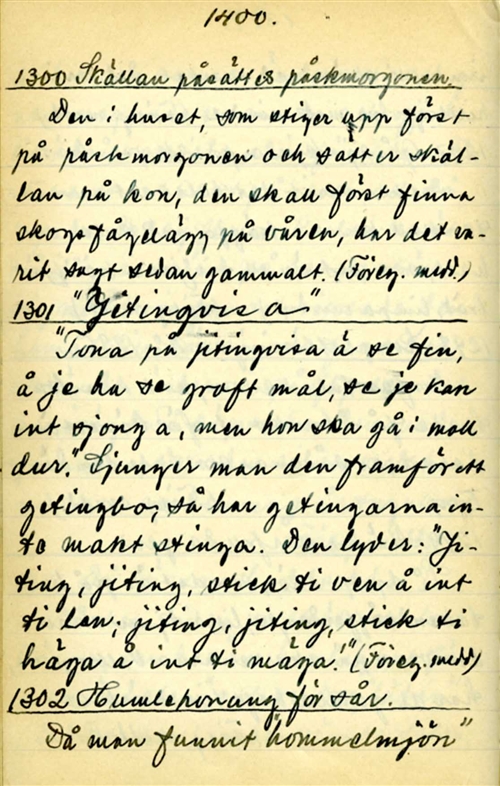 1400.
1300 Skällan påsättes påskmorgonen.
Den i huset, som stiger upp först
på påskmorgonen och sätter skäl-
lan på kon, den skall först finna
skogsfågelägg på våren, har det va-
rit sagt sedan gammalt. (Föreg. medd.)
1301 "Getingvisa"
"Tona på jitingvisa ä se fin,
å je ha se groft mål, se je kan
int sjong a, men hon ska gå i moll
dur." Sjunger man den framför ett
getingbo, så har getingarna in-
te makt stinga. Den lyder: "Ji-
ting, jiting, stick ti ven å int
ti len; jiting, jiting, stick ti
häga å int ti mäga!" (Föreg. medd)
1302 Humlehonung för sår.
Då man funnit "hommelmjön"